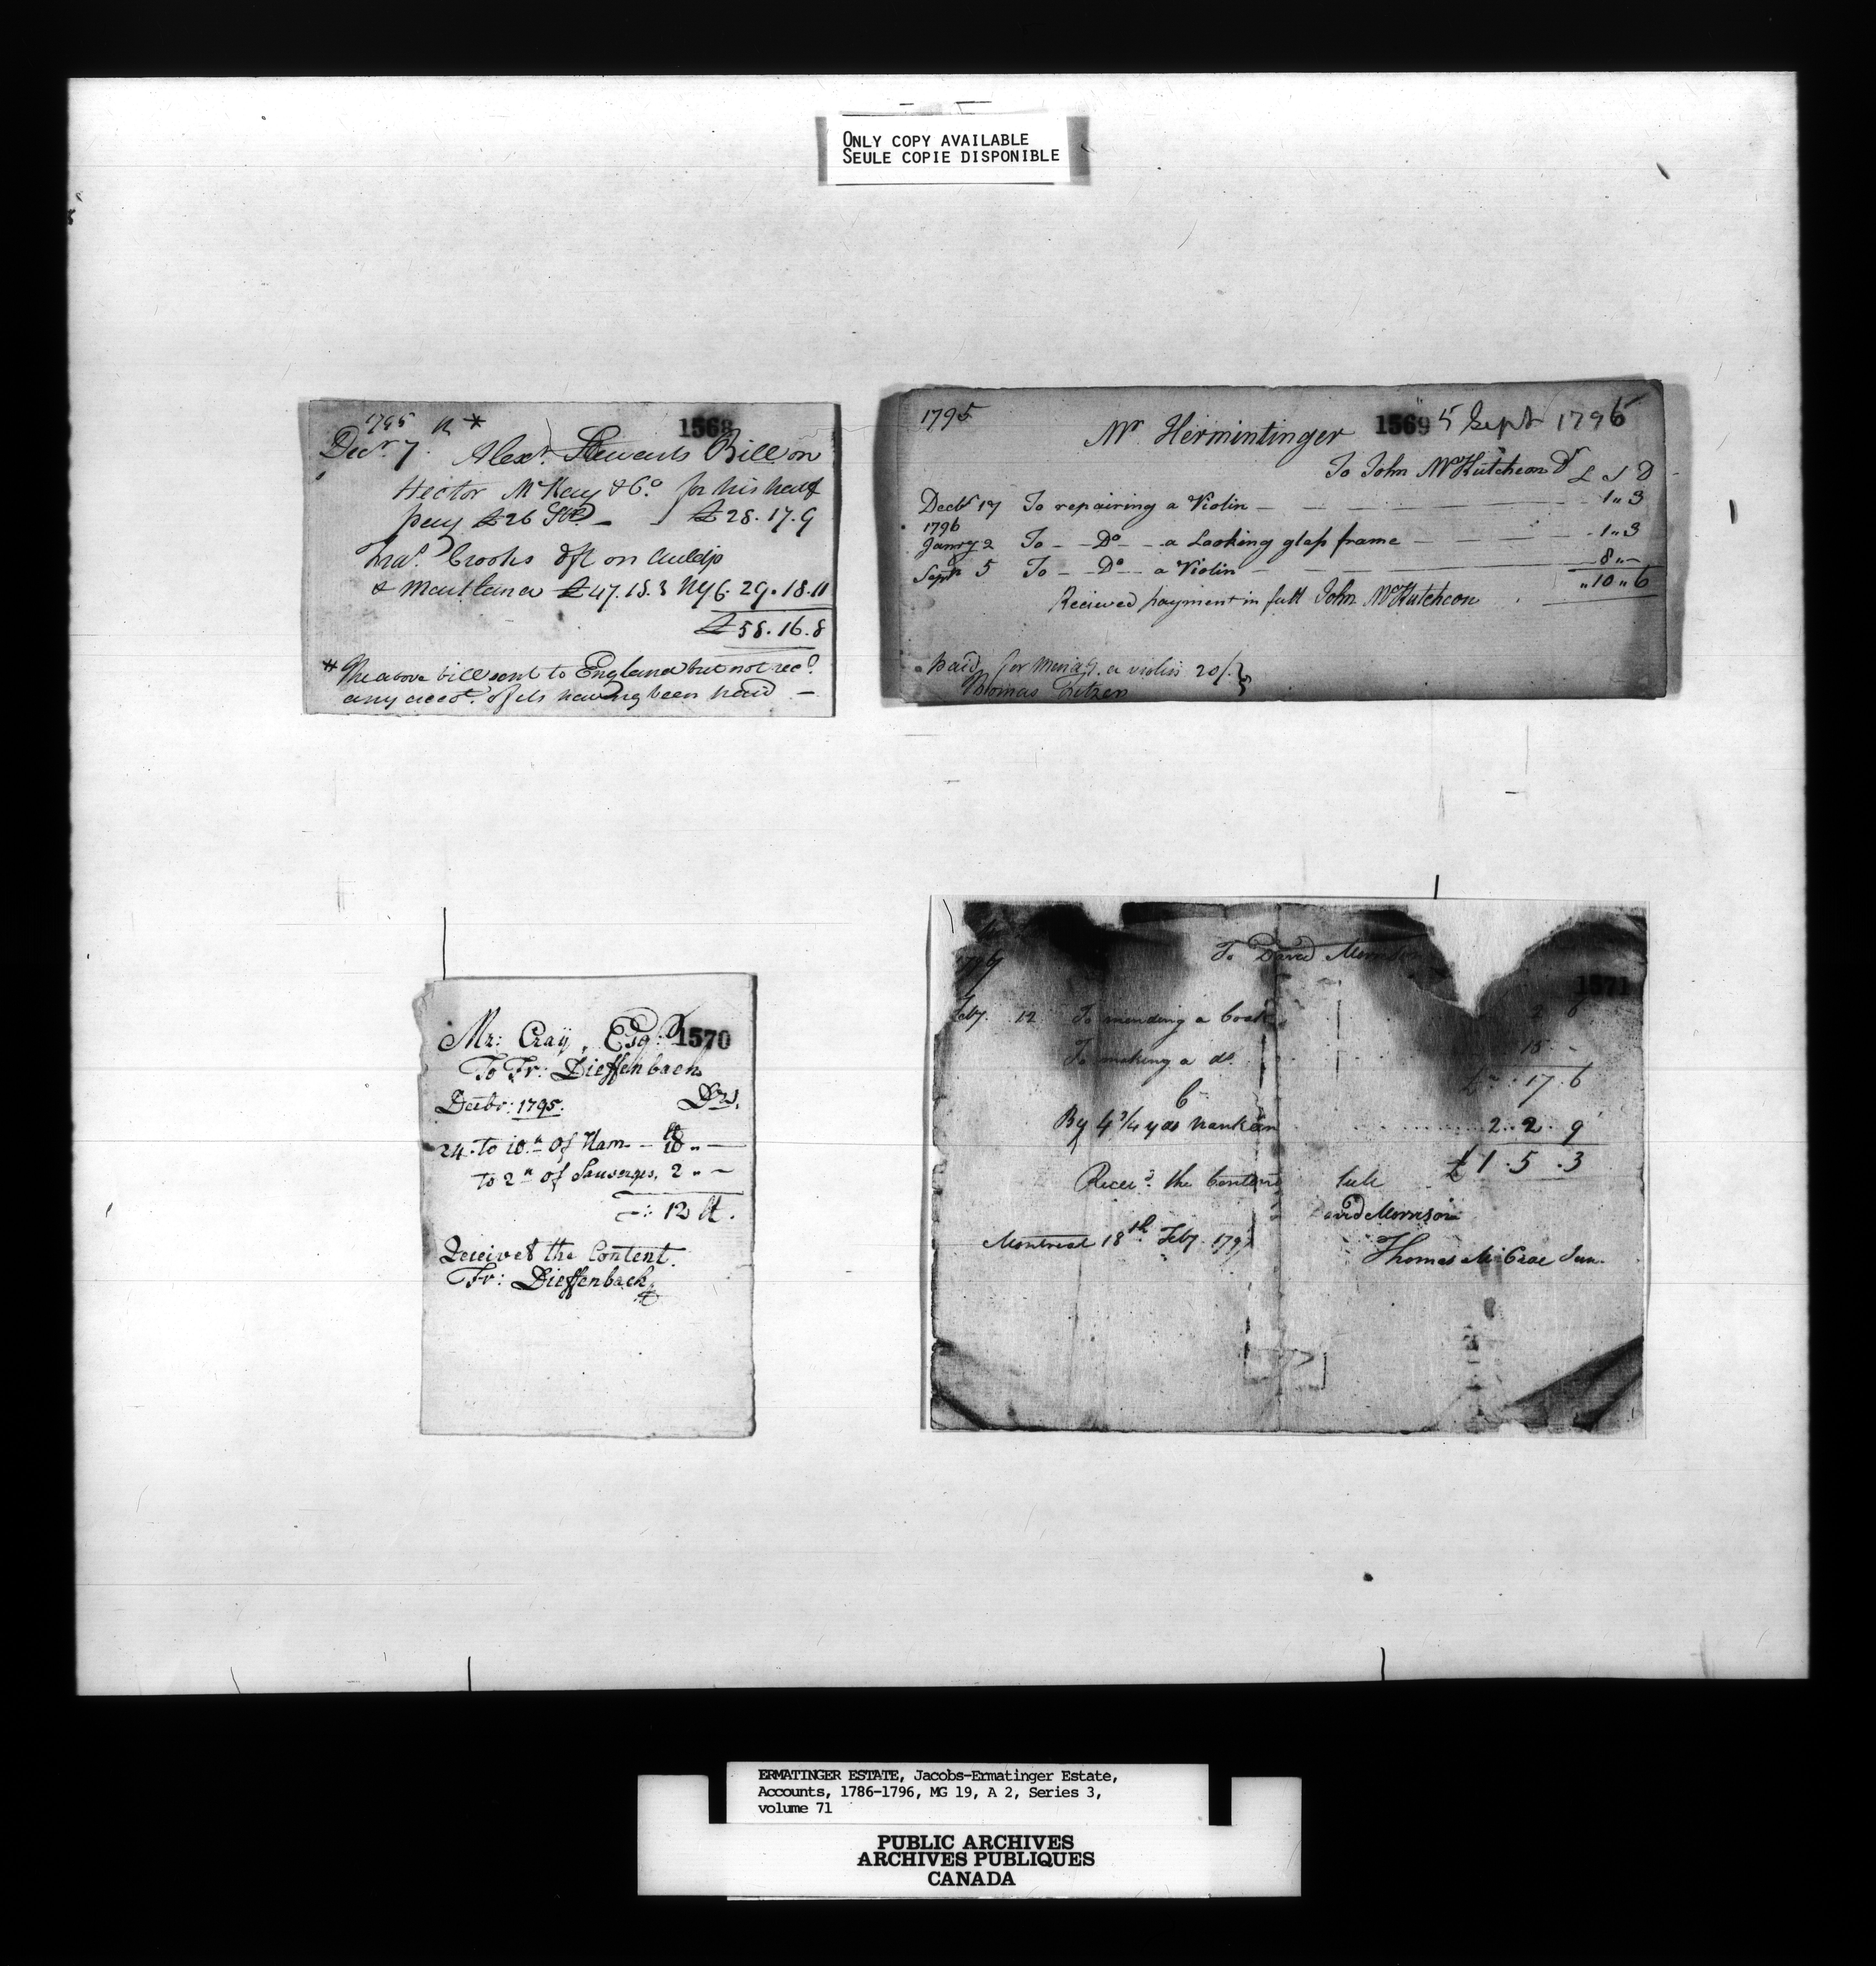 ONLY COPY AVAILABLE
SEULE COPIE DISPONIBLE
1568
1795
Decr. 7. Alexr. Stewarts Bill on
Hector McKay & Co. for his half
pay £26 Stg - £28.17.9
Crooks dft on Auldjo
& Maitland £47.18.3 NY C. 29.18.11
£58.16.8
* The above bill sent to England but not recd.
any acct. of its having been paid -
1795
Mr. Hermintinger 1569 5 Sept 1796
To John McHutcheon Dr
£ S D
Decbr 17 To repairing a Violin - 1"3
1796
Janry 2 To - Do - a Looking glass frame - 1"3
Septr 5 To - Do - a Violin - 8"-
"10"6
Recieved payment in full John McHutcheon
paid for mendg. a violin 20/.
Thomas
Mr: Cray, Esqr: 1570
To Fr: Dieffenbach
Decbr: 1795. Drs.
24. to 10 lt of Ham - 10 " -
to 2 lt of Sausages, 2 " -
12 lt.
Receivet the Content.
Fr: Dieffenbach
To David Morrison
1571
Feby. 12 To mending a Coat 2 6
To making a do. 15 -
£ - : 17 . 6
C
By 4 3/4 yds Nankeen 2 . 2 . 9
£ 1 . 5 . 3
Receid. the Contents
David Morrison
Montreal 18th Feby 179
Thomas McCrae Jun.
ERMATINGER ESTATE, Jacobs-Ermatinger Estate,
Accounts, 1786-1796, MG 19, A 2, Series 3,
volume 71
PUBLIC ARCHIVES
ARCHIVES PUBLIQUES
CANADA